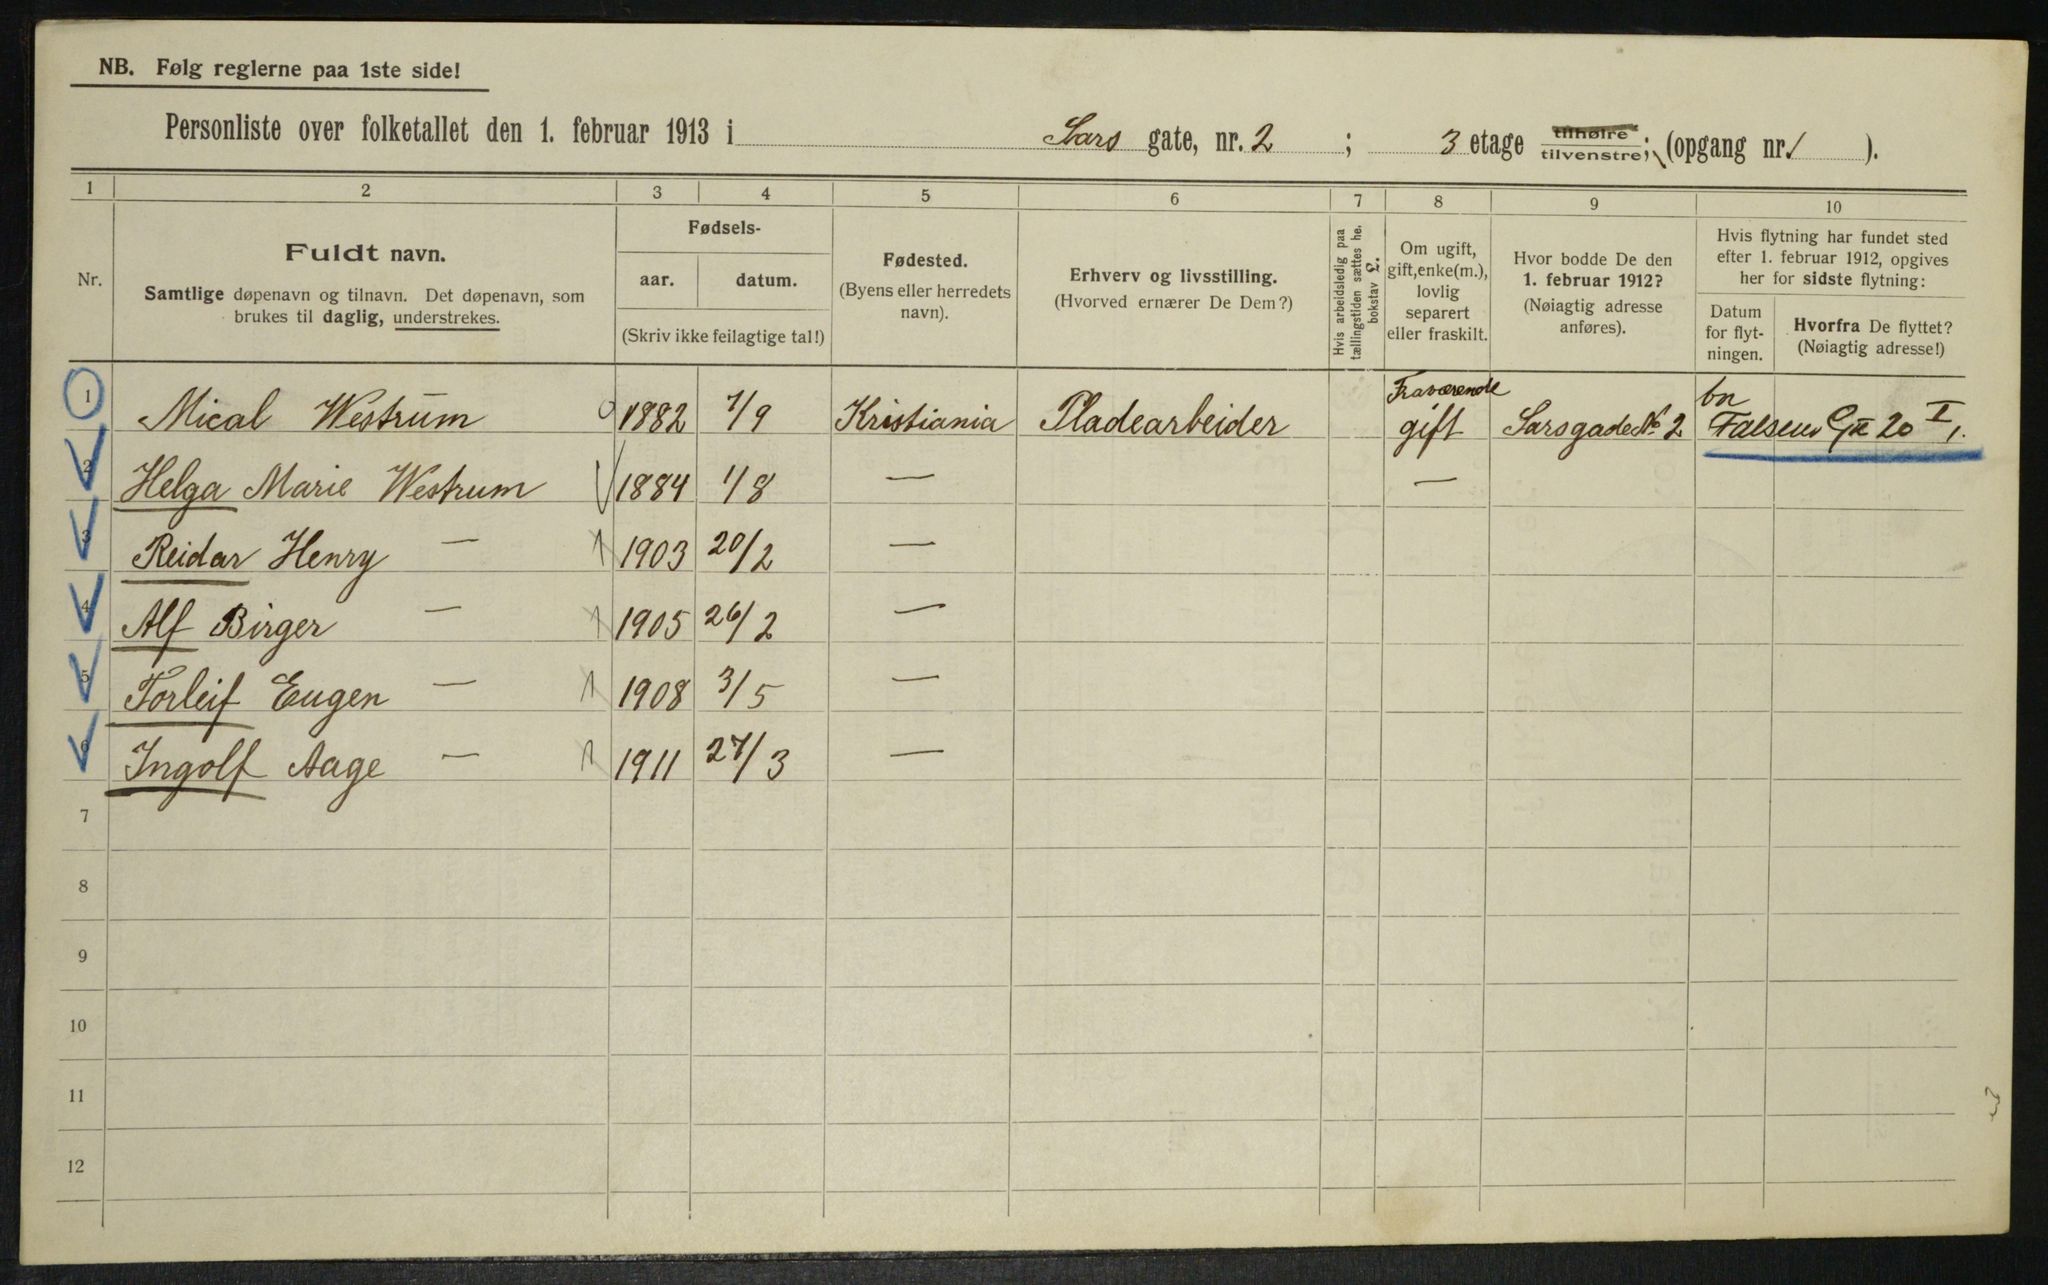 NB. Følg reglerne paa 1ste side!
Personliste over folketallet den 1. februar 1913 i Sars gate, nr. 2 ; 3 etage tilhøire tilvenstre; (opgang nr. 1 ).
1 2 3 4 5 6 7 8 9 10
Nr.
Fuldt navn.
Samtlige døpenavn og tilnavn. Det døpenavn, som
brukes til daglig, understrekes.
Fødsels-
aar. datum.
(Skriv ikke feilagtige tal!)
Fødested.
(Byens eller herredets
navn).
Erhverv og livsstilling.
(Hvorved ernærer De Dem?)
Hvis arbeidsledig paa
tællingstiden sættes he.
bokstav L.
Om ugift,
gift, enke(m.),
lovlig
separert
eller fraskilt.
Hvor bodde De den
1. februar 1912?
(Nøiagtig adresse
anføres).
Hvis flytning har fundet sted
efter 1. februar 1912, opgives
her for sidste flytning:
Datum
for flyt-
ningen.
Hvorfra De flyttet?
(Nøiagtig adresse!)
1 Mical Westrum 1882 7/9 Kristiania Pladearbeider Fraværende gift Sarsgade No 2 bn Falsens 20 I 1.
2 Helga Marie Westrum 1884 1/8 — —
3 Reidar Henry — 1903 20/2 —
4 Alf Birger — 1905 26/2 —
5 Torleif Eugen — 1908 3/5 —
6 Ingolf Aage — 1911 27/3 —
7
8
9
10
11
12